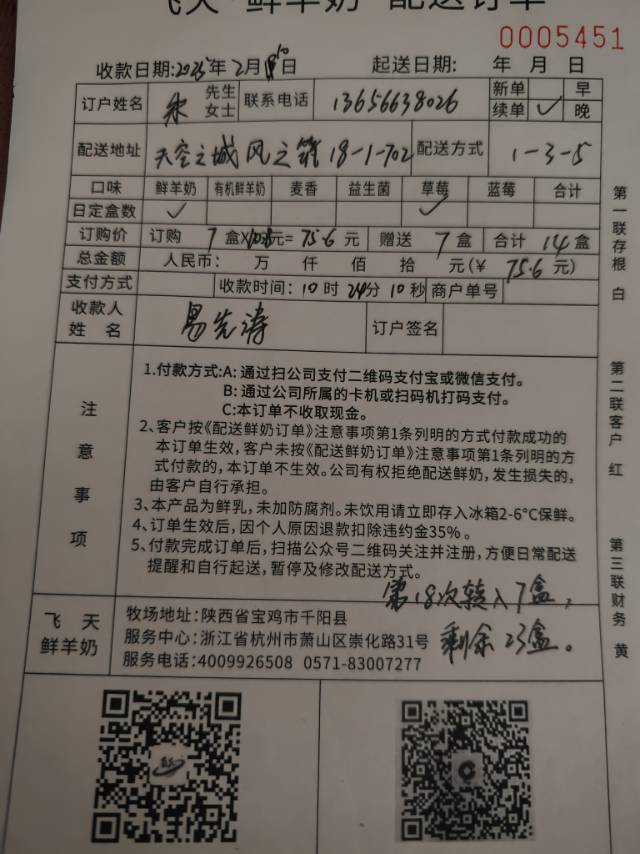 飞天"鲜羊奶"配送订单
0005451
收款日期:2025年2月10日 起送日期: 年 月 日
订户姓名 朱 先生 女士 联系电话 13656638026 新单 早
续单 ✓ 晚
配送地址 天空之城风之籁18-1-702 配送方式 1-3-5
口味 鲜羊奶 有机鲜羊奶 麦香 益生菌 草莓 蓝莓 合计
日定盒数 ✓ ✓
订购价 订购 7 盒X10.8元= 75.6 元 赠送 7 盒 合计 14 盒
总金额 人民币: 万 仟 佰 拾 元(¥ 75.6 元)
支付方式 收款时间: 10 时 24分 10 秒 商户单号
收款人姓名 易先涛 订户签名
注意事项
1.付款方式:A: 通过扫公司支付二维码支付宝或微信支付。
B: 通过公司所属的卡机或扫码机打码支付。
C:本订单不收取现金。
2、客户按《配送鲜奶订单》注意事项第1条列明的方式付款成功的
本订单生效，客户未按《配送鲜奶订单》注意事项第1条列明的方
式付款的，本订单不生效。公司有权拒绝配送鲜奶，发生损失的，
由客户自行承担。
3、本产品为鲜乳，未加防腐剂。未饮用请立即存入冰箱2-6°C保鲜。
4、订单生效后，因个人原因退款扣除违约金35%。
5、付款完成订单后，扫描公众号二维码关注并注册，方便日常配送
提醒和自行起送，暂停及修改配送方式。
第18次转入7盒，
剩余23盒。
飞天鲜羊奶
牧场地址:陕西省宝鸡市千阳县
服务中心:浙江省杭州市萧山区崇化路31号
服务电话:4009926508 0571-83007277
第一联存根 白
第二联客户 红
第三联财务 黄